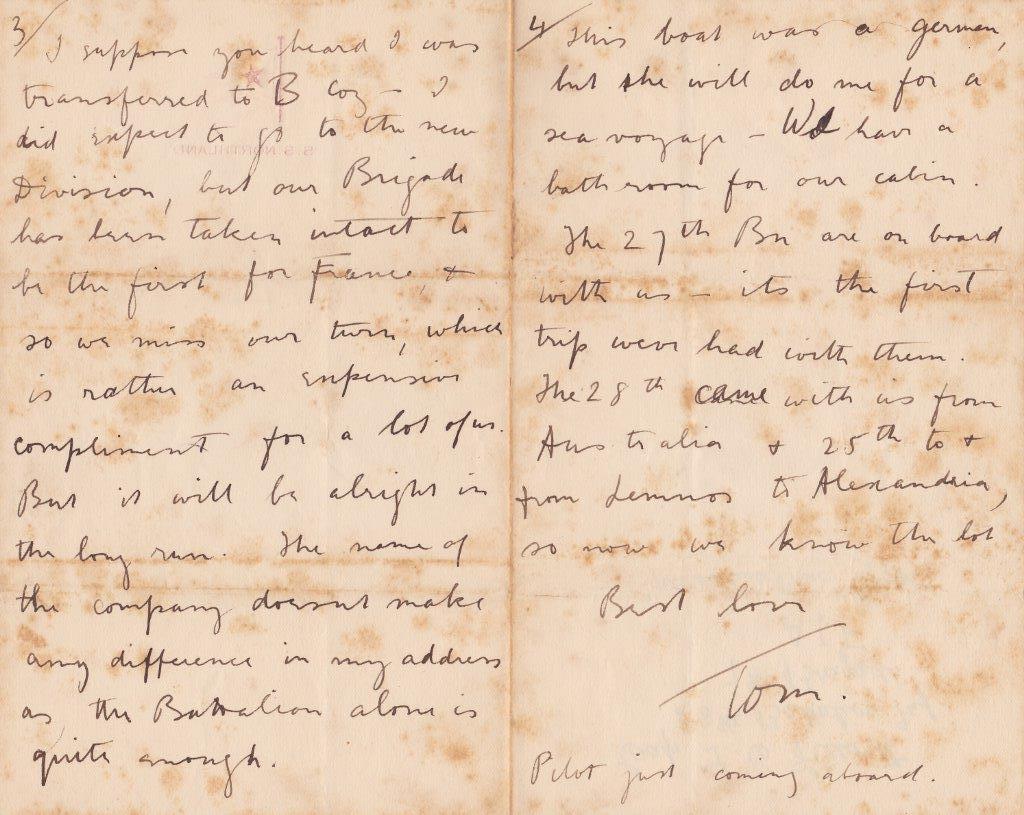 3/ I suppose you heard I was
transferred to B Coy - I
did expect to go to the new
Division, but our Brigade
has been taken intact to
be the first for France, &
so we miss our turn, which
is rather an expensive
compliment for a lot of us.
But it will be alright in
the long run. The name of
the company doesnt make
any difference in my address
as the Battalion alone is
quite enough.
S.S. NORTHLAND
4/ This boat was a german,
but she will do me for a
sea voyage - We have a
bath room for our cabin.
The 27th Bn are on board
with us - its the first
trip weve had with them.
The 28th came with us from
Australia & 25th to &
from Lemnos to Alexandria,
so now we know the lot
Best love
Tom.
Pilot just coming aboard.